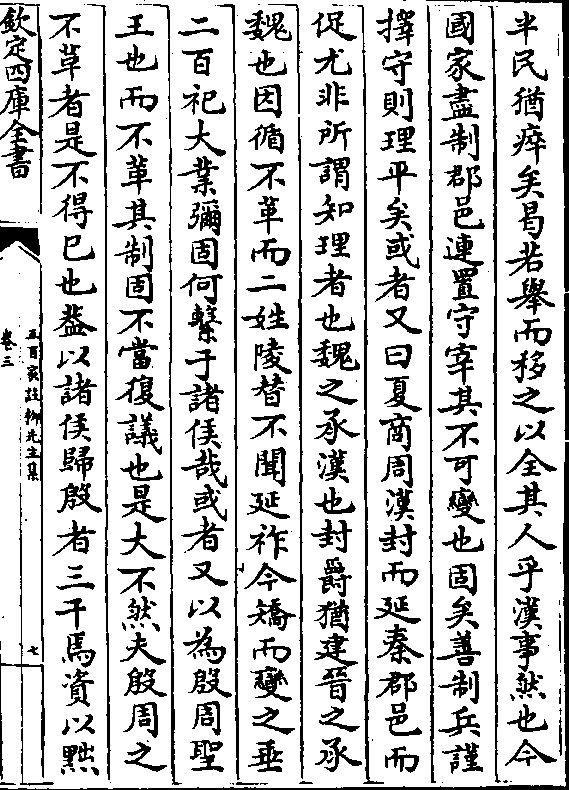 半民猶瘁矣曷若舉而移之以全其人乎漢事然也今
國家盡制郡邑連置守宰其不可變也固矣善制兵謹
擇守則理平矣或者又曰夏商周漢封而延秦郡邑而
促尤非所謂知理者也魏之承漢也封爵猶建晉之承
魏也因循不革而二姓陵替不聞延祚今矯而變之垂
二百祀大業彌固何繫于諸侯哉或者又以為殷周聖
王也而不革其制固不當復議也是大不然夫殷周之
不革者是不得已也葢以諸侯歸殷者三千焉資以黜
欽定四庫全書
五百家註柳先生集
卷三
七